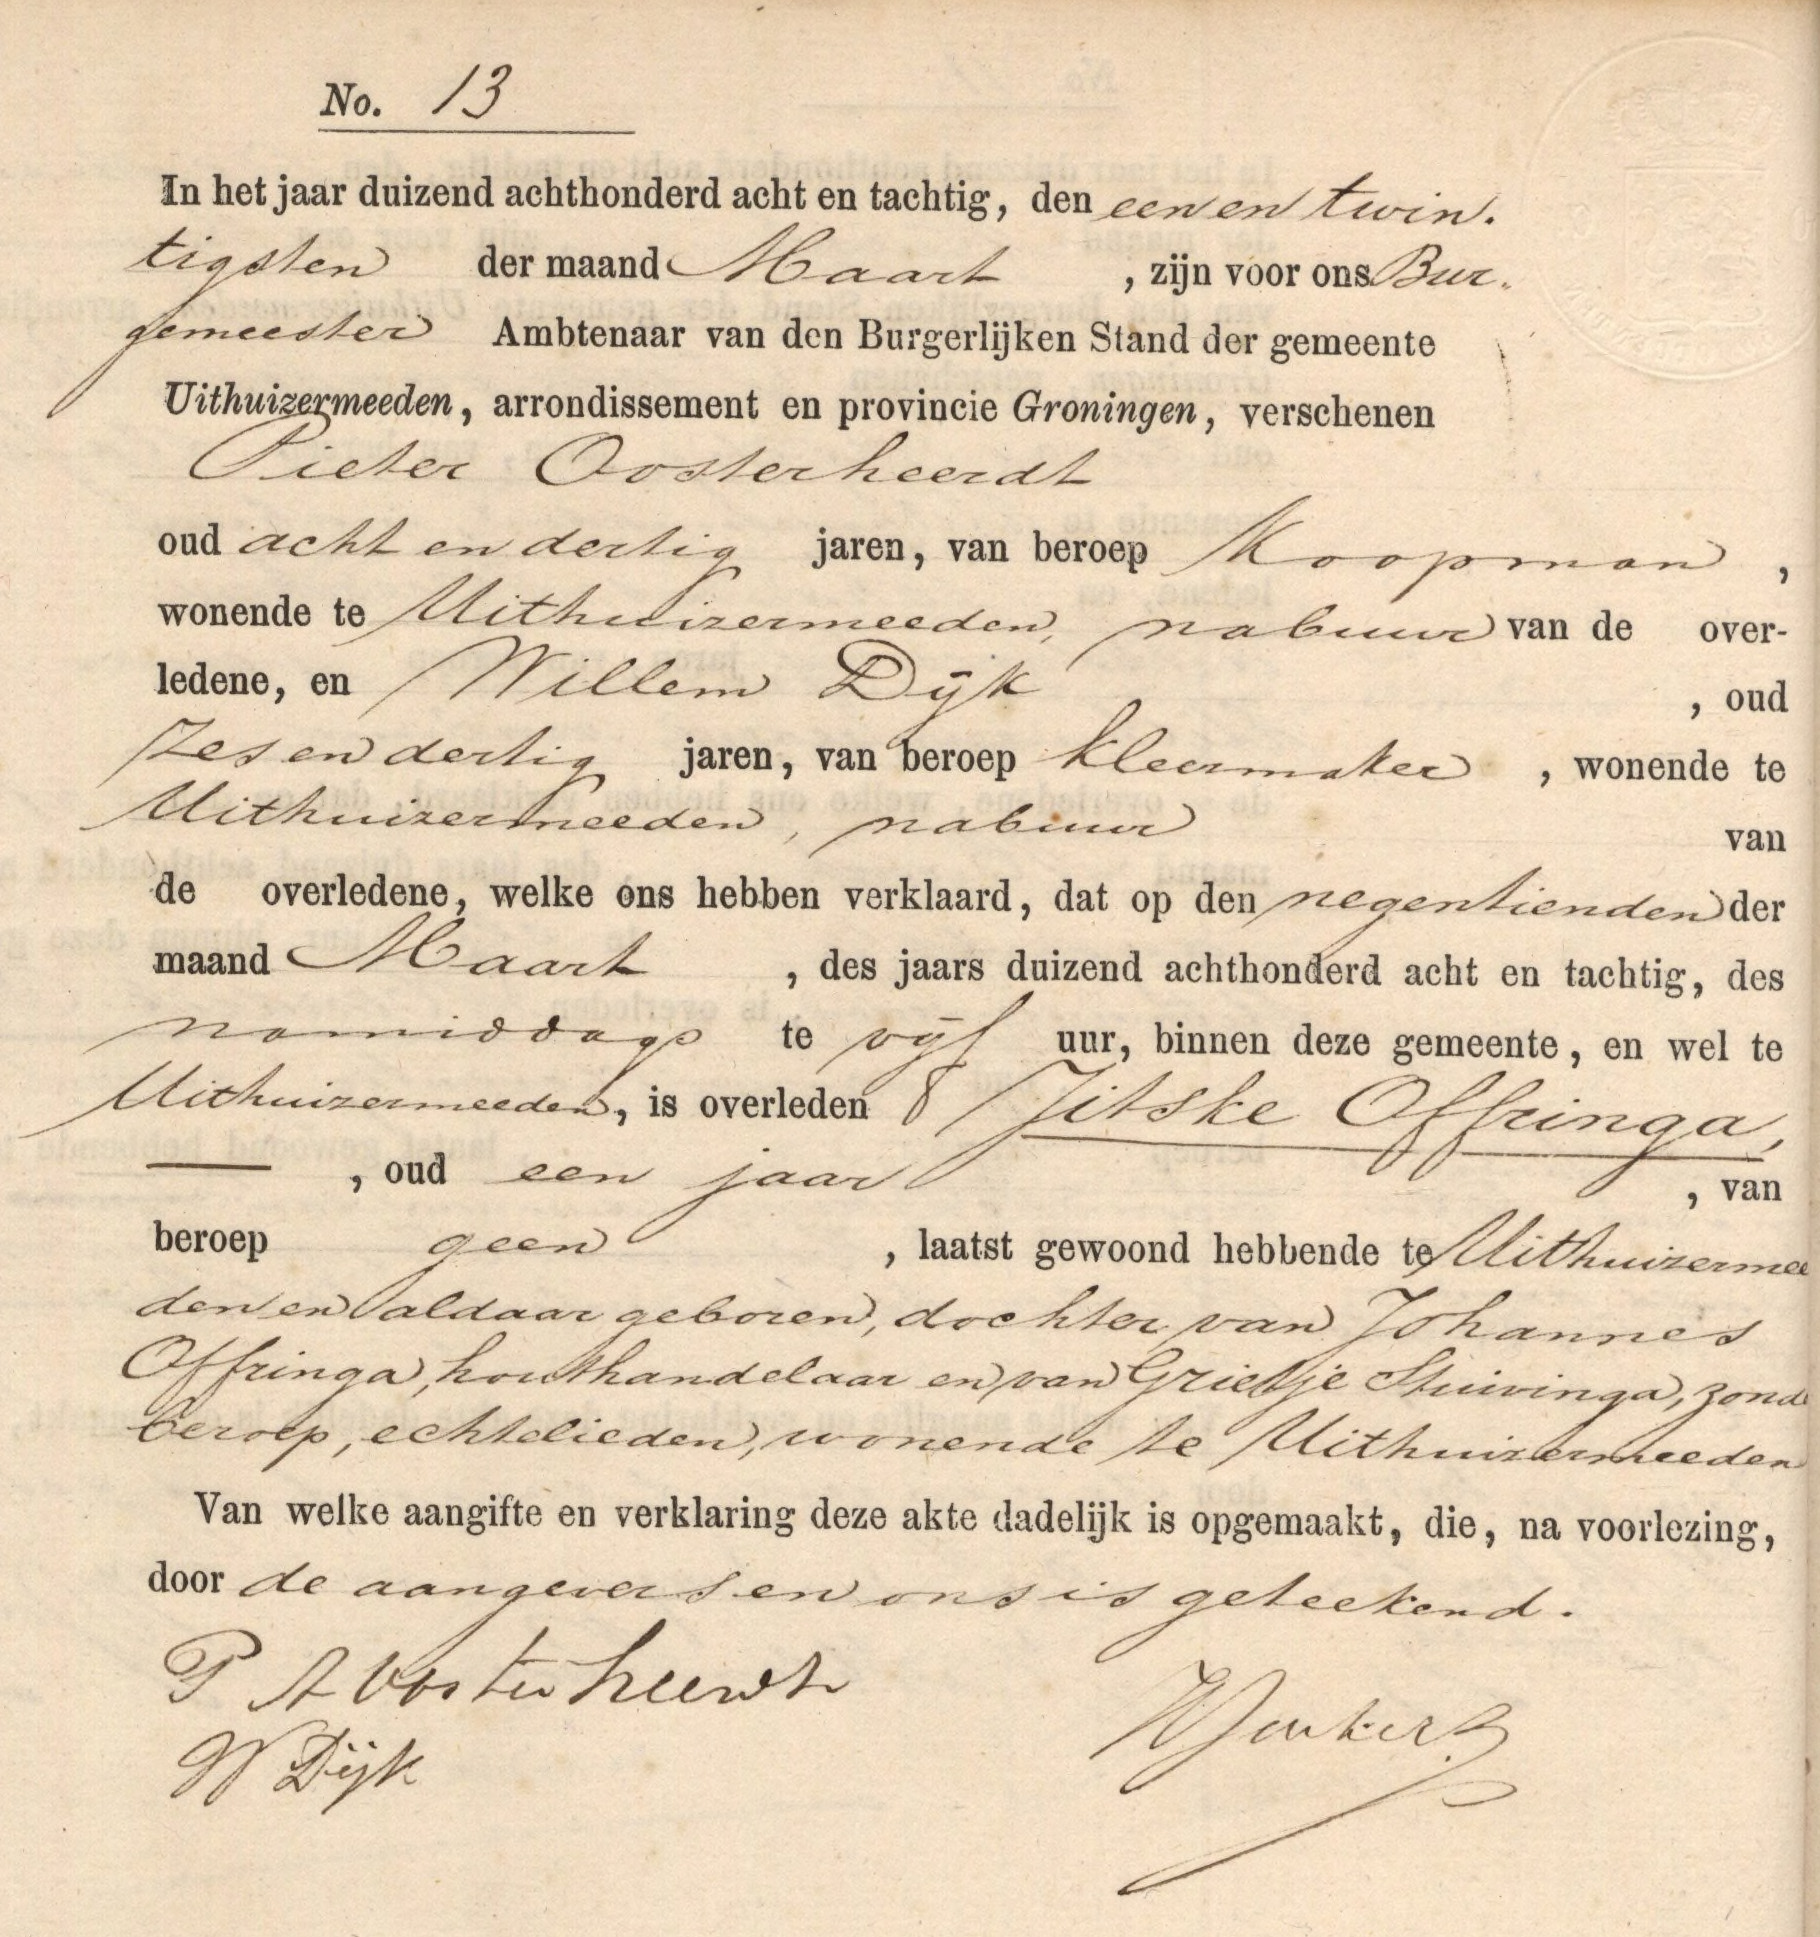 No. 13
In het jaar duizend achthonderd acht en tachtig, den een en twin.
tigsten der maand Maart , zijn voor ons Bur.
gemeester Ambtenaar van den Burgerlijken Stand der gemeente
Uithuizermeeden, arrondissement en provincie Groningen, verschenen
Pieter Oosterheerdt
oud acht en dertig jaren, van beroep Koopman ,
wonende te Uithuizermeeden, nabuur van de over-
ledene, en Willem Dijk , oud
zes en dertig jaren, van beroep kleermaker , wonende te
Uithuizermeeden, nabuur van
de overledene, welke ons hebben verklaard, dat op den negentienden der
maand Maart , des jaars duizend achthonderd acht en tachtig, des
namiddags te vijf uur, binnen deze gemeente, en wel te
Uithuizermeeden, is overleden Jitske Offringa,
— , oud een jaar , van
beroep geen , laatst gewoond hebbende te Uithuizermee
den en aldaar geboren, dochter van Johannes
Offringa, houthandelaar en van Grietje Stuivinga, zond
beroep, echtelieden, wonende te Uithuizermeeden
Van welke aangifte en verklaring deze akte dadelijk is opgemaakt, die, na voorlezing,
door de aangevers en ons is geteekend.
P A Oosterheerdt
W Dijk